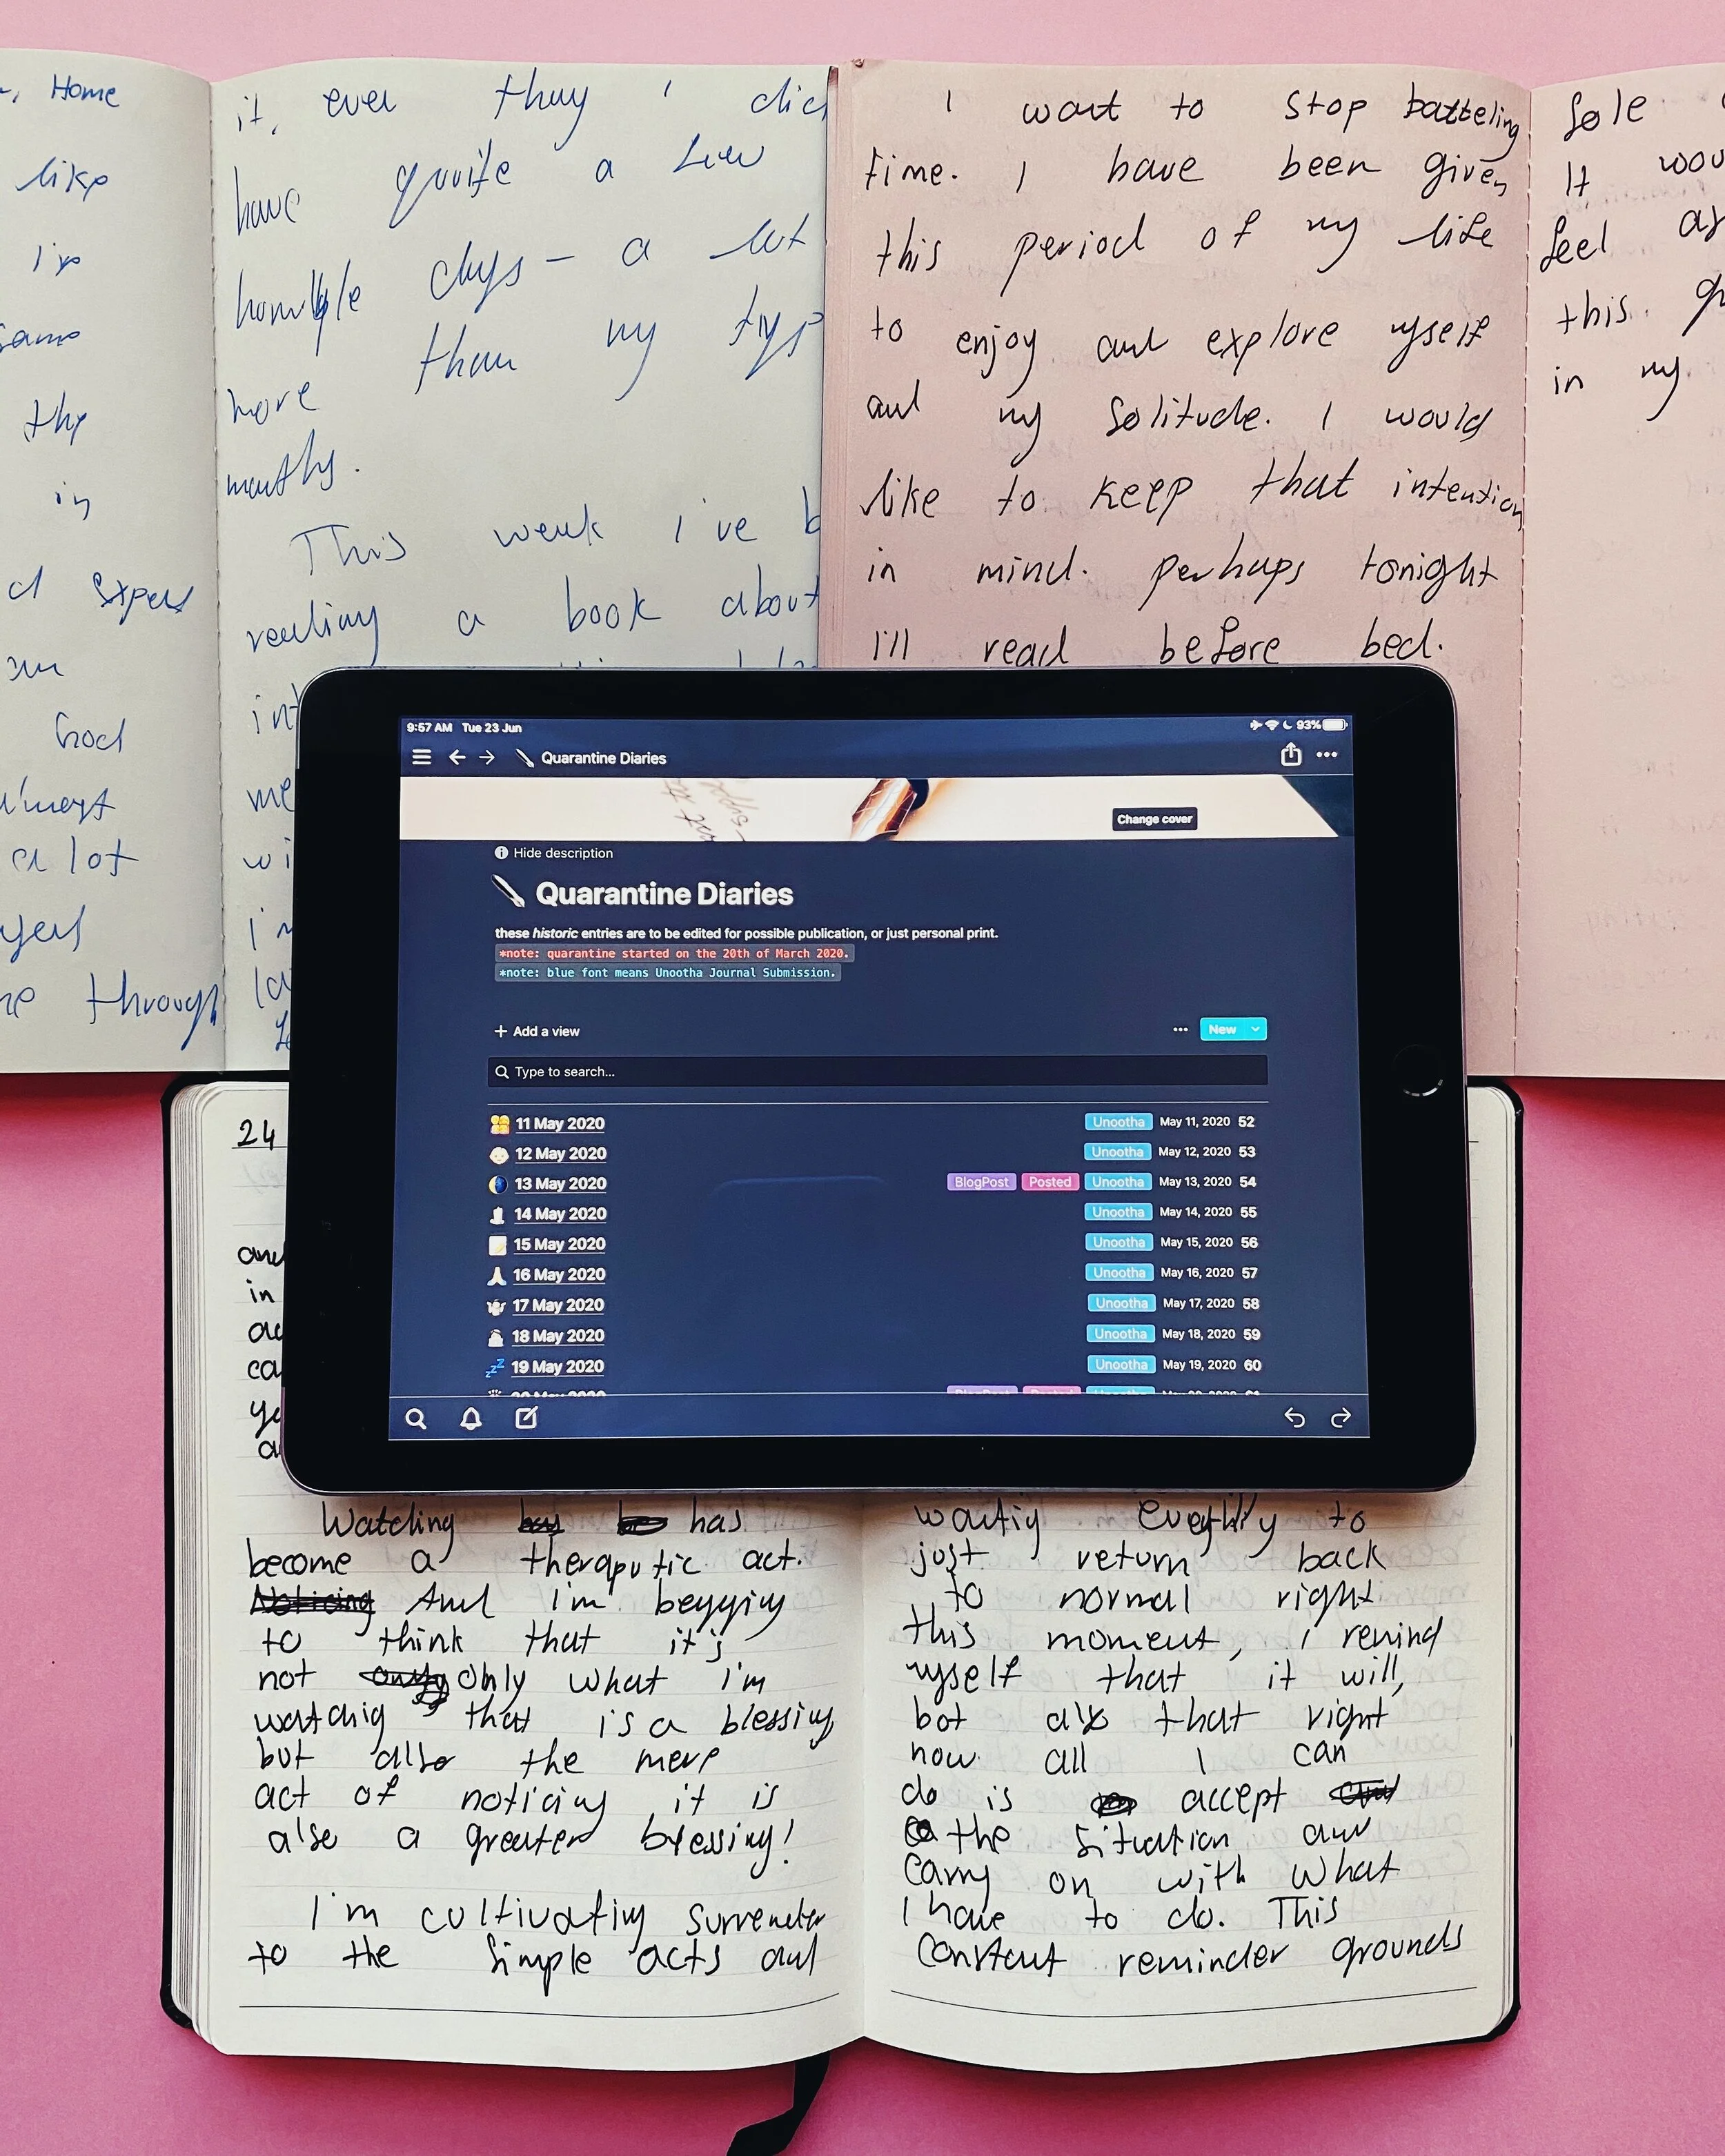 Home
like
the
in
God
a lot
through
it, even they i did
have quite a few
days – a lot
more than my
months.
This week i've b
reading a book about
I want to stop batteling
time. I have been given
this period of my life
to enjoy and explore myself
and my solitude. I would
like to keep that intention
in mind. perhaps tonight
I'll read before bed.
Sole
It wou
feel as
this.
in my
9:57 AM Tue 23 Jun 93%
Quarantine Diaries
Change cover
Hide description
Quarantine Diaries
these historic entries are to be edited for possible publication, or just personal print.
*note: quarantine started on the 20th of March 2020.
*note: blue font means Unootha Journal Submission.
+ Add a view ... New
Type to search...
11 May 2020 Unootha May 11, 2020 52
12 May 2020 Unootha May 12, 2020 53
13 May 2020 BlogPost Posted Unootha May 13, 2020 54
14 May 2020 Unootha May 14, 2020 55
15 May 2020 Unootha May 15, 2020 56
16 May 2020 Unootha May 16, 2020 57
17 May 2020 Unootha May 17, 2020 58
18 May 2020 Unootha May 18, 2020 59
19 May 2020 Unootha May 19, 2020 60
24
in
Watching has
become a theraputic act.
Noticing And i'm begging
to think that it's
not only what i'm
watchig that is a blessing
but also the mere
act of noticing it is
also a greater blessing!
I'm cultivating surrender
to the simple acts and
wantig everything to
just return back
to normal right
this moment, i remind
myself that it will,
bot also that right
now all I can
do is accept
the situation and
carry on with what
I have to do. This
constant reminder grounds